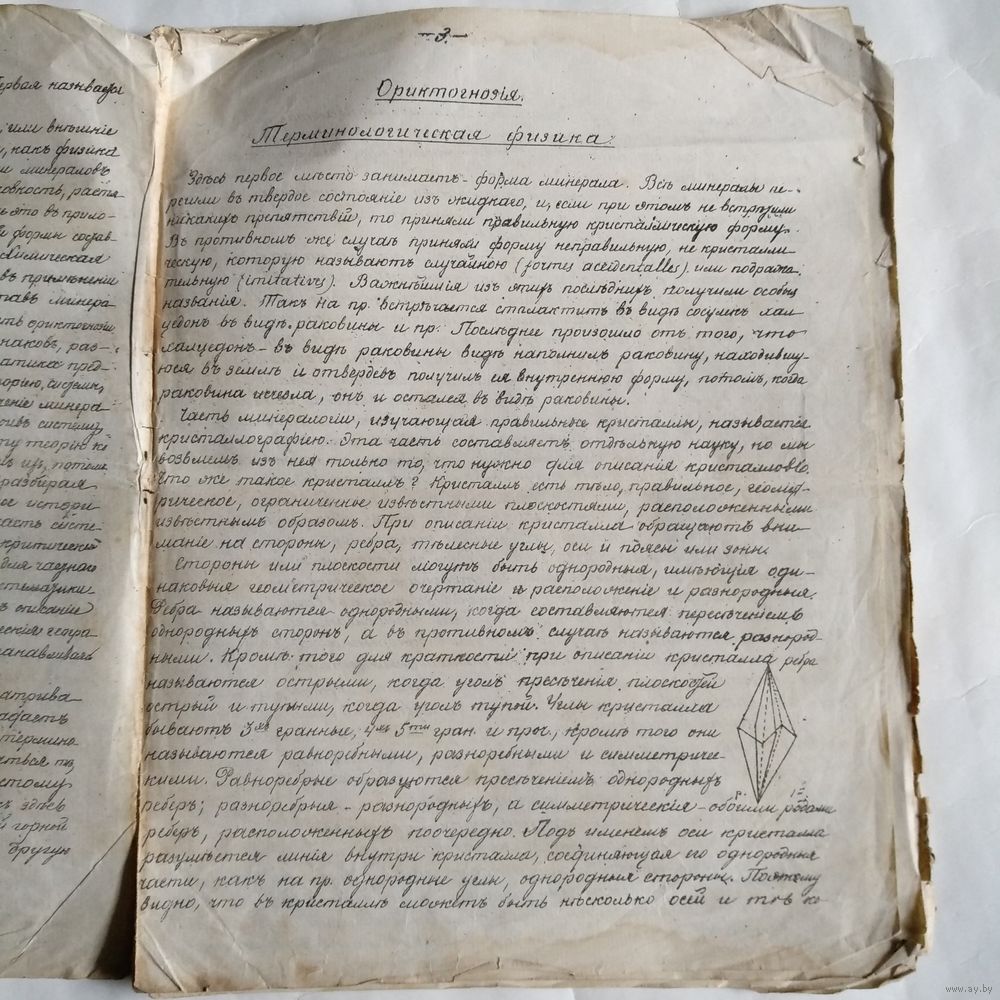 ервая называет
, или внѣшніе
, какъ физика
и минераловъ
ь это въ прило-
й форми состав-
Химическая
въ примѣненіи
тавъ минера
ть ориктогнозія
наковъ, раз-
атика пред-
ченіе минера
онвъ систему,
ту теорію
разбирая
ое истори
асть систе-
критической
для частнаго
стематики
ъ описаніе
ческія геогра
танавливать
атрива-
адаетъ
термино-
стому
съ здѣсь
й горной
другую
— 3. —
Ориктогнозія.
Терминологическая физика.
Здѣсь первое мѣсто занимаетъ - форма минерала. Всѣ минералы пе-
решли въ твердое состояніе изъ жидкаго, и, если при этомъ не встрѣтили
никакихъ препятствій, то приняли правильную кристаллическую форму.
Въ противномъ же случаѣ приняли форму неправильную, не кристалли-
ческую, которую называютъ случайною (formes accidentalles) или подража-
тельную (imitatives). Важнѣйшія изъ этихъ послѣднихъ получили особыя
названія. Такъ на пр. встрѣчается сталактитъ въ видѣ сосулекъ хал-
цедонъ въ видѣ раковины и пр. Послѣднее произошло отъ того, что
халцедонъ - въ видѣ раковины видѣ наполнилъ раковину, находившу-
юся въ землѣ и отвердѣвъ получилъ ея внутреннюю форму, потомъ, когда
раковина исчезла, онъ и остался въ видѣ раковины.
Часть минералогіи, изучающая правильные кристаллы, называется
кристаллографію. Эта часть составляетъ отдѣльную науку, но мы
возьмемъ изъ нея только то, что нужно для описанія кристалловъ.
Что же такое кристаллъ? Кристаллъ есть тѣло, правильное, геомет-
рическое, ограниченные извѣстными плоскостями, расположенными
извѣстнымъ образомъ. При описаніи кристалла обращаютъ вни-
маніе на стороны, ребра, тѣлесные углы, оси и поясы или зоны.
Стороны или плоскости могутъ быть однородныя, имѣющія оди-
наковыя геометрическое очертаніе и расположеніе и разнородныя.
Ребра называются однородными, когда составляются пересѣченіемъ
однородныхъ сторонъ, а въ противномъ случаѣ называются разнород-
ными. Кромѣ того для краткости при описаніи кристалла ребра
называются острыми, когда уголъ пресѣченія плоскостей
острый и тупыми, когда уголъ тупой. Углы кристалла
бываютъ 3хъ гранные, 4хъ 5ти гран. и проч., кромѣ того они
называются равноребными, разноребными и симметриче-
скими. Равноребрые образуются пресѣченіемъ однородныхъ
реберъ; разноребрыя - разнородныхъ, а симметрическія - обоими родами
реберъ, расположенныхъ поочередно. Подъ именемъ оси кристалла
разумѣется линія внутри кристалла, соединяющая его однородныя
части, какъ на пр. однородные углы, однородныя стороны. Поэтому
видно, что въ кристаллѣ можетъ быть нѣсколько осей и
www.ay.by